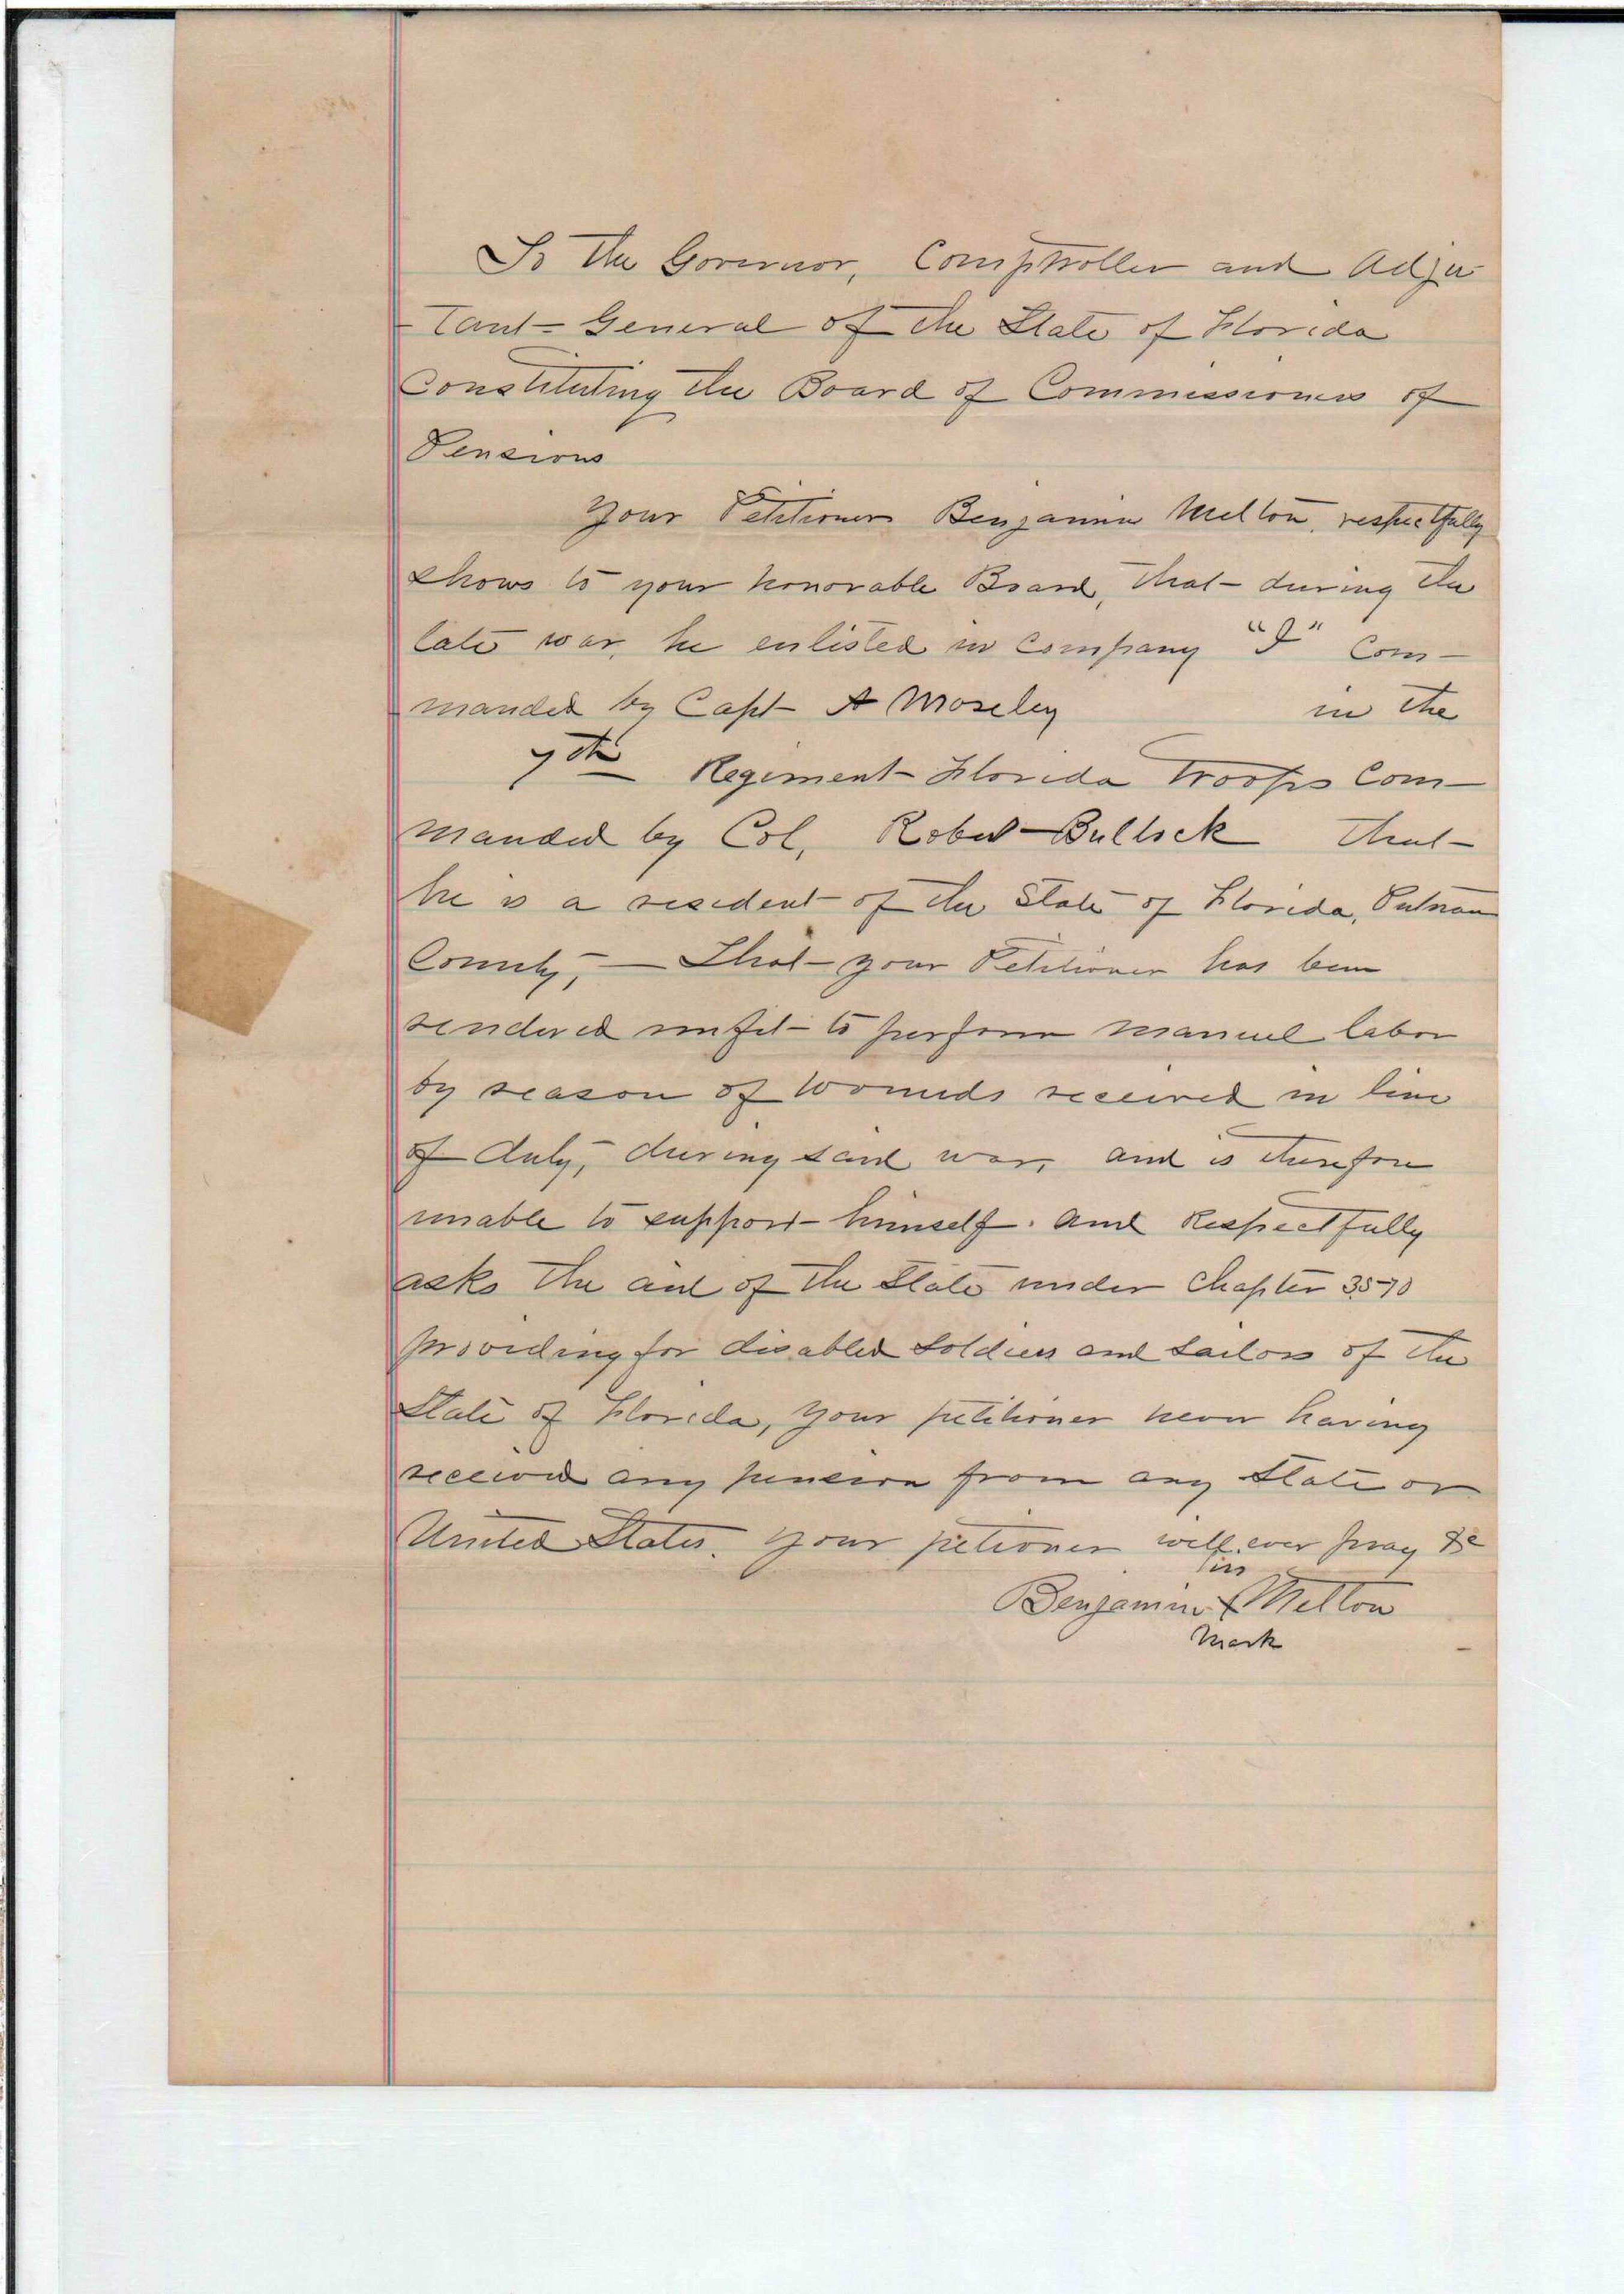 To the Governor, Comptroller and Adju
tant-General of the State of Florida
Constituting the Board of Commissioners of
Pensions
Your Petitioner Benjamin Melton, respectfully
shows to your honorable Board, that during the
late war, he enlisted in company "I" Com-
manded by Capt A Moseley in the
7th Regiment Florida Troops Com-
manded by Col, Robert Bullock that
he is a resident of the State of Florida, Putnam
County, — That your Petitioner has been
rendered unfit to perform manuel labor
by reason of wounds received in line
of duty, during said war, and is therefore
unable to support himself. and Respectfully
asks the aid of the State under Chapter 3570
providing for disabled soldiers and sailors of the
State of Florida, your petitioner never having
received any pension from any State or
United States. your petioner will ever pray &c
his
Benjamin X Melton
mark